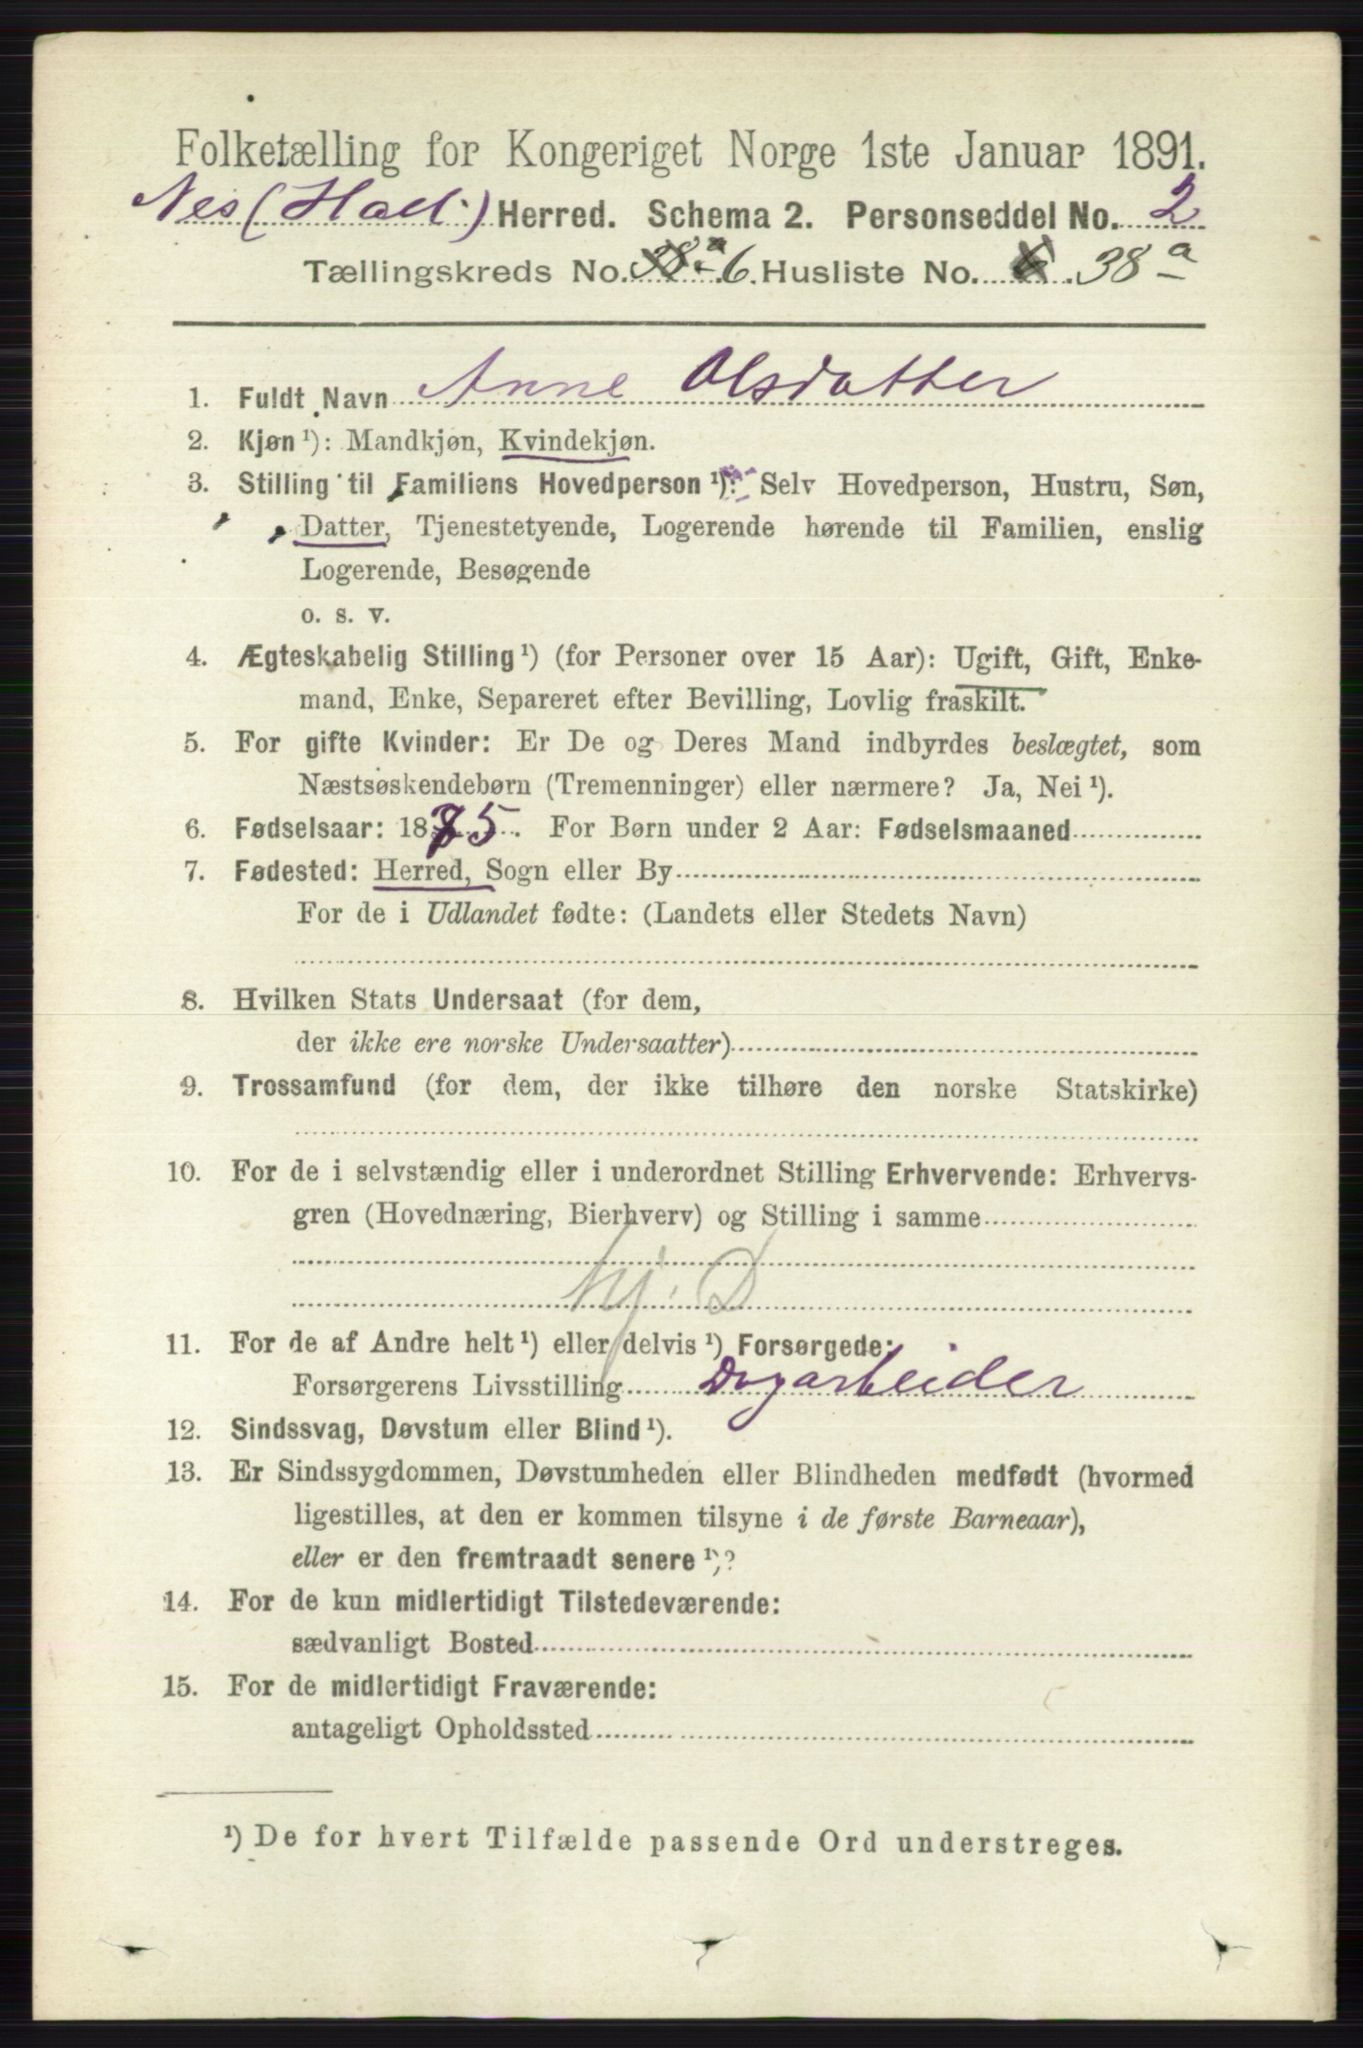 Folketælling for Kongeriget Norge 1ste Januar 1891.
Nes (Hall.) Herred. Schema 2. Personseddel No. 2
Tællingskreds No. 38 a 6. Husliste No. 6 38 a
1. Fuldt Navn Anne Olsdatter
2. Kjøn ¹): Mandkjøn, Kvindekjøn.
3. Stilling til Familiens Hovedperson ¹): Selv Hovedperson, Hustru, Søn,
Datter, Tjenestetyende, Logerende hørende til Familien, enslig
Logerende, Besøgende
o. s. v.
4. Ægteskabelig Stilling ¹) (for Personer over 15 Aar): Ugift, Gift, Enke-
mand, Enke, Separeret efter Bevilling, Lovlig fraskilt.
5. For gifte Kvinder: Er De og Deres Mand indbyrdes beslægtet, som
Næstsøskendebørn (Tremenninger) eller nærmere? Ja, Nei ¹).
6. Fødselsaar: 1875. For Børn under 2 Aar: Fødselsmaaned
7. Fødested: Herred, Sogn eller By
For de i Udlandet fødte: (Landets eller Stedets Navn)
8. Hvilken Stats Undersaat (for dem,
der ikke ere norske Undersaatter)
9. Trossamfund (for dem, der ikke tilhøre den norske Statskirke)
10. For de i selvstændig eller i underordnet Stilling Erhvervende: Erhvervs-
gren (Hovednæring, Bierhverv) og Stilling i samme
Hj. D
11. For de af Andre helt ¹) eller delvis ¹) Forsørgede:
Forsørgerens Livsstilling Dagarbeider
12. Sindssvag, Døvstum eller Blind ¹).
13. Er Sindssygdommen, Døvstumheden eller Blindheden medfødt (hvormed
ligestilles, at den er kommen tilsyne i de første Barneaar),
eller er den fremtraadt senere ¹)?
14. For de kun midlertidigt Tilstedeværende:
sædvanligt Bosted
15. For de midlertidigt Fraværende:
antageligt Opholdssted
¹) De for hvert Tilfælde passende Ord understreges.